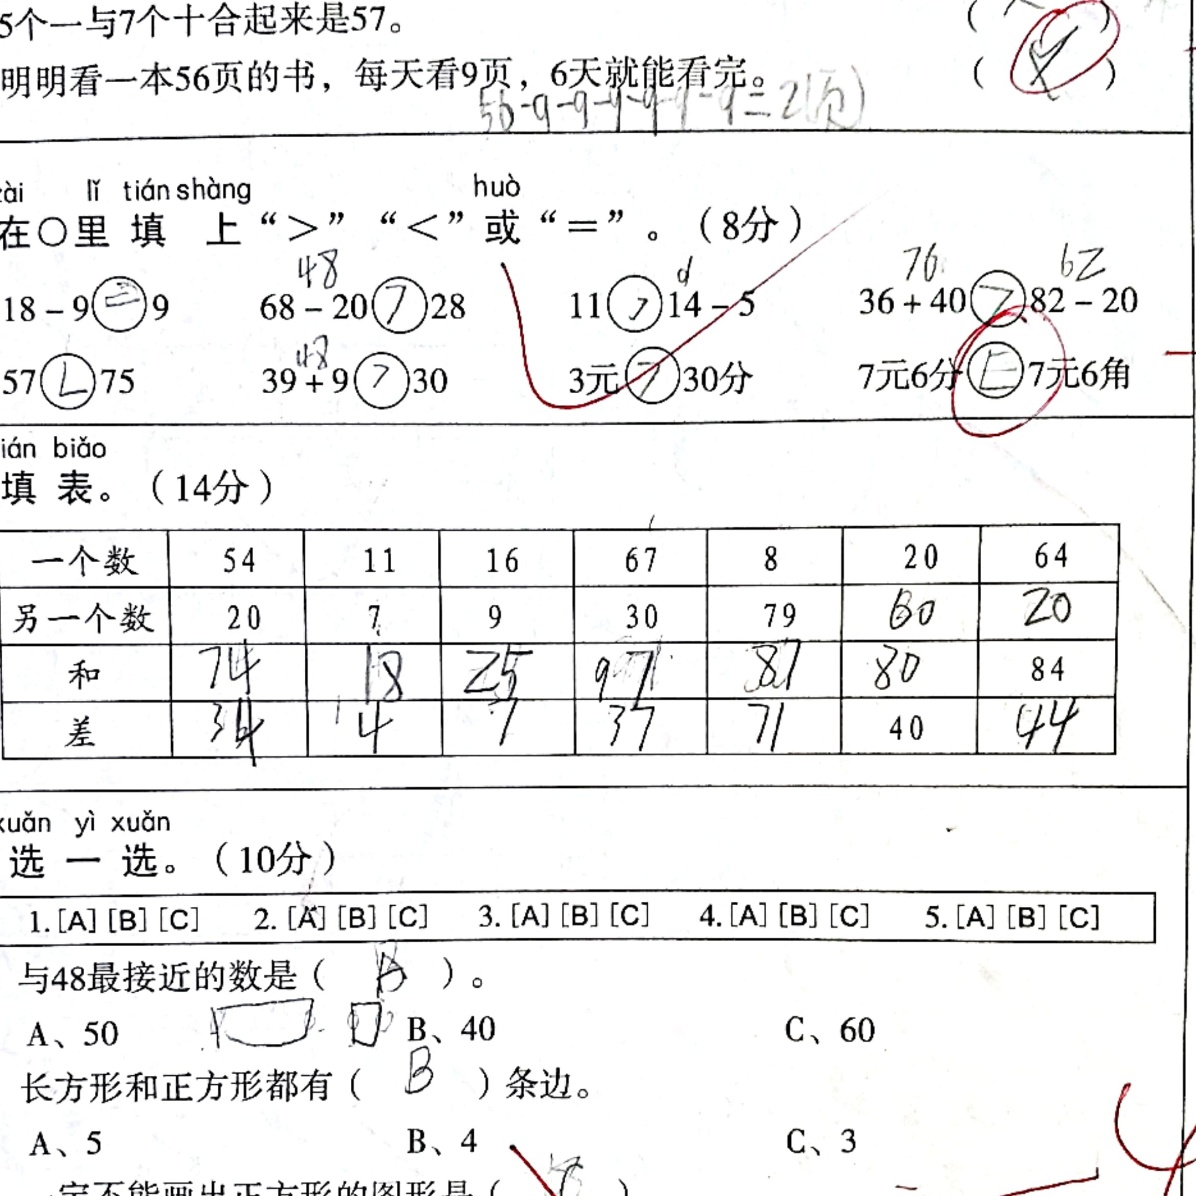 5个一与7个十合起来是57。 ( )
明明看一本56页的书，每天看9页，6天就能看完。 ( × )
56-9-9-9-9-9-9=2(页)
zài lǐ tián shàng huò
在○里 填 上“>”“<”或“=”。(8分)
48 9 76 62
18-9 = 9 68-20 > 28 11 > 14-5 36+40 > 82-20
48
57 < 75 39+9 > 30 3元 > 30分 7元6分 7元6角
tián biǎo
填 表。(14分)
一个数 54 11 16 67 8 20 64
另一个数 20 7 9 30 79 60 20
和 74 18 25 97 87 80 84
差 34 4 7 37 71 40 44
xuǎn yì xuǎn
选 一 选。(10分)
1.[A] [B] [C] 2.[A] [B] [C] 3.[A] [B] [C] 4.[A] [B] [C] 5.[A] [B] [C]
与48最接近的数是( )。
A、50 B、40 C、60
长方形和正方形都有( B )条边。
A、5 B、4 C、3
一定不能画出正方形的图形是( )